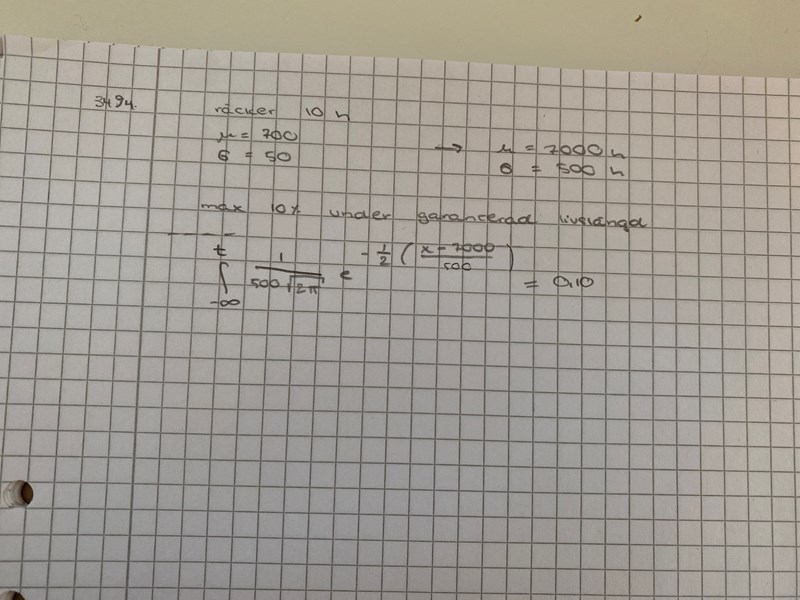 3494. räcker 10 h
μ = 700
σ = 50
→ μ = 7000 h
σ = 500 h
max 10% under garanterad livslängd
t
∫ 1/(500√2π) e^-1/2 (x-7000/500) = 0,10
-∞